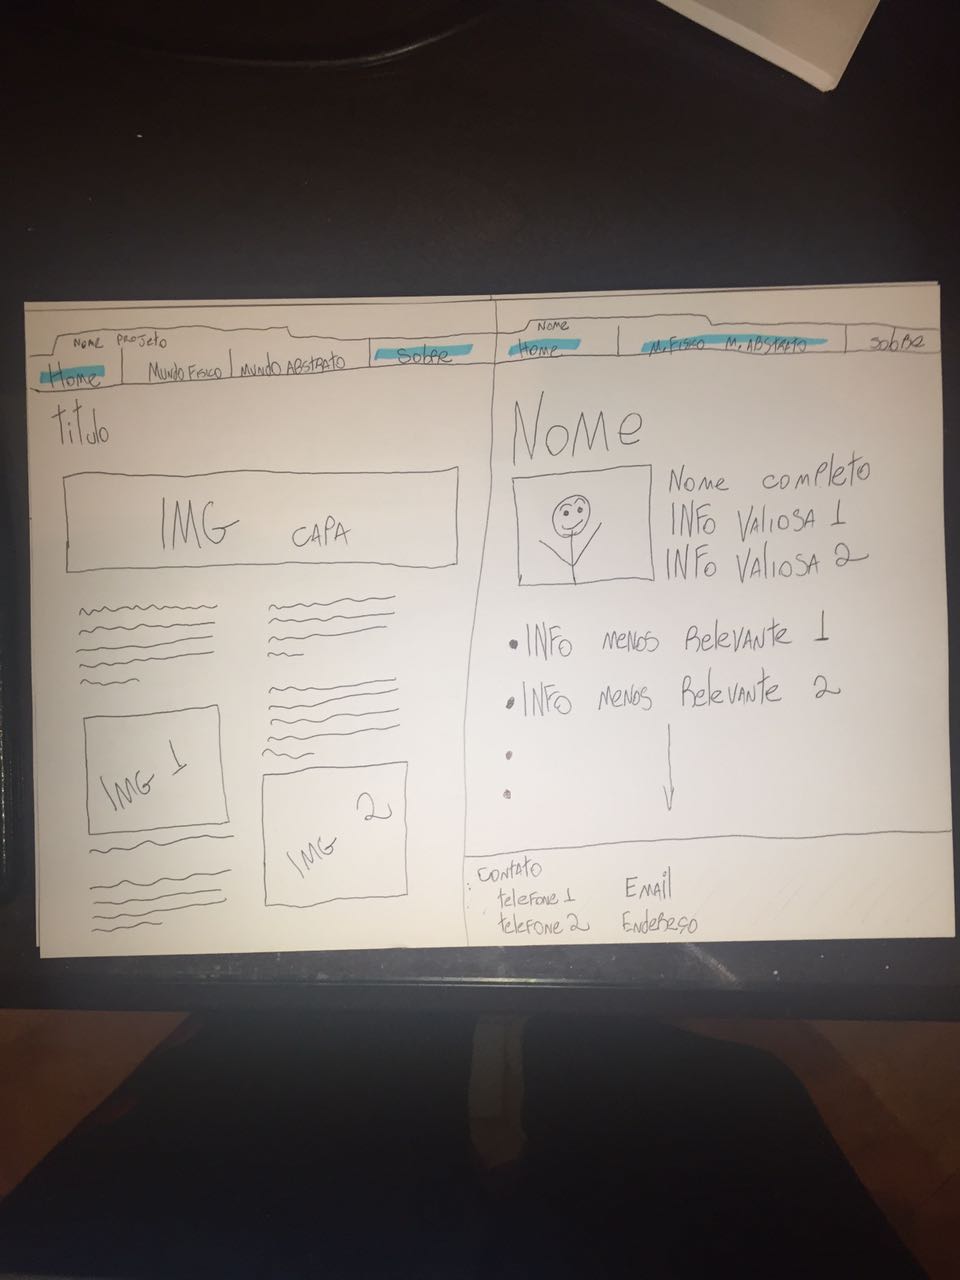 Nome Projeto
Home
Mundo Fisico
Mundo Abstrato
Sobre
Titulo
IMG CAPA
IMG 1
IMG 2
Nome
Home
M. Fisico M. Abstrato
Sobre
Nome
Nome completo
INFO VALIOSA 1
INFO VALIOSA 2
INFO menos Relevante 1
INFO menos Relevante 2
Contato
telefone 1
Email
telefone 2
Endereço